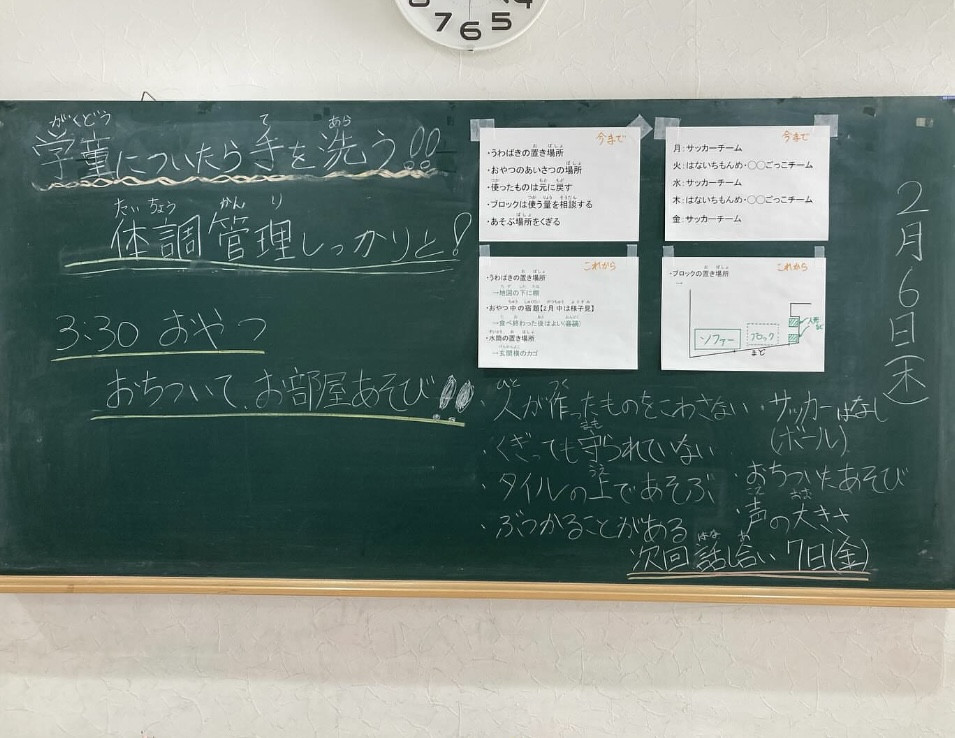 7 6 5
学童についたら手を洗う!!
体調管理しっかりと!
3:30 おやつ
おちついて、お部屋あそび!!
今まで
・うわばきの置き場所
・おやつのあいさつの場所
・使ったものは元に戻す
・ブロックは使う量を相談する
・あそぶ場所をくぎる
今まで
月: サッカーチーム
火: はないちもんめ・〇〇ごっこチーム
水: サッカーチーム
木: はないちもんめ・〇〇ごっこチーム
金: サッカーチーム
これから
・うわばきの置き場所
→地図の下に棚
・おやつ中の宿題【2月中は様子見】
→食べ終わった後はよい(暮議)
・水筒の置き場所
→玄関横のカゴ
これから
・ブロックの置き場所
→
ソファー
ブロック
まで
・人が作ったものをこわさない
・くぎっても守られていない
・タイルの上であそぶ
・ぶつかることがある
・サッカーはなし
(ボール)
・おちついたあそび
・声の大きさ
次回話し合い 7日(金)
2月6日(木)